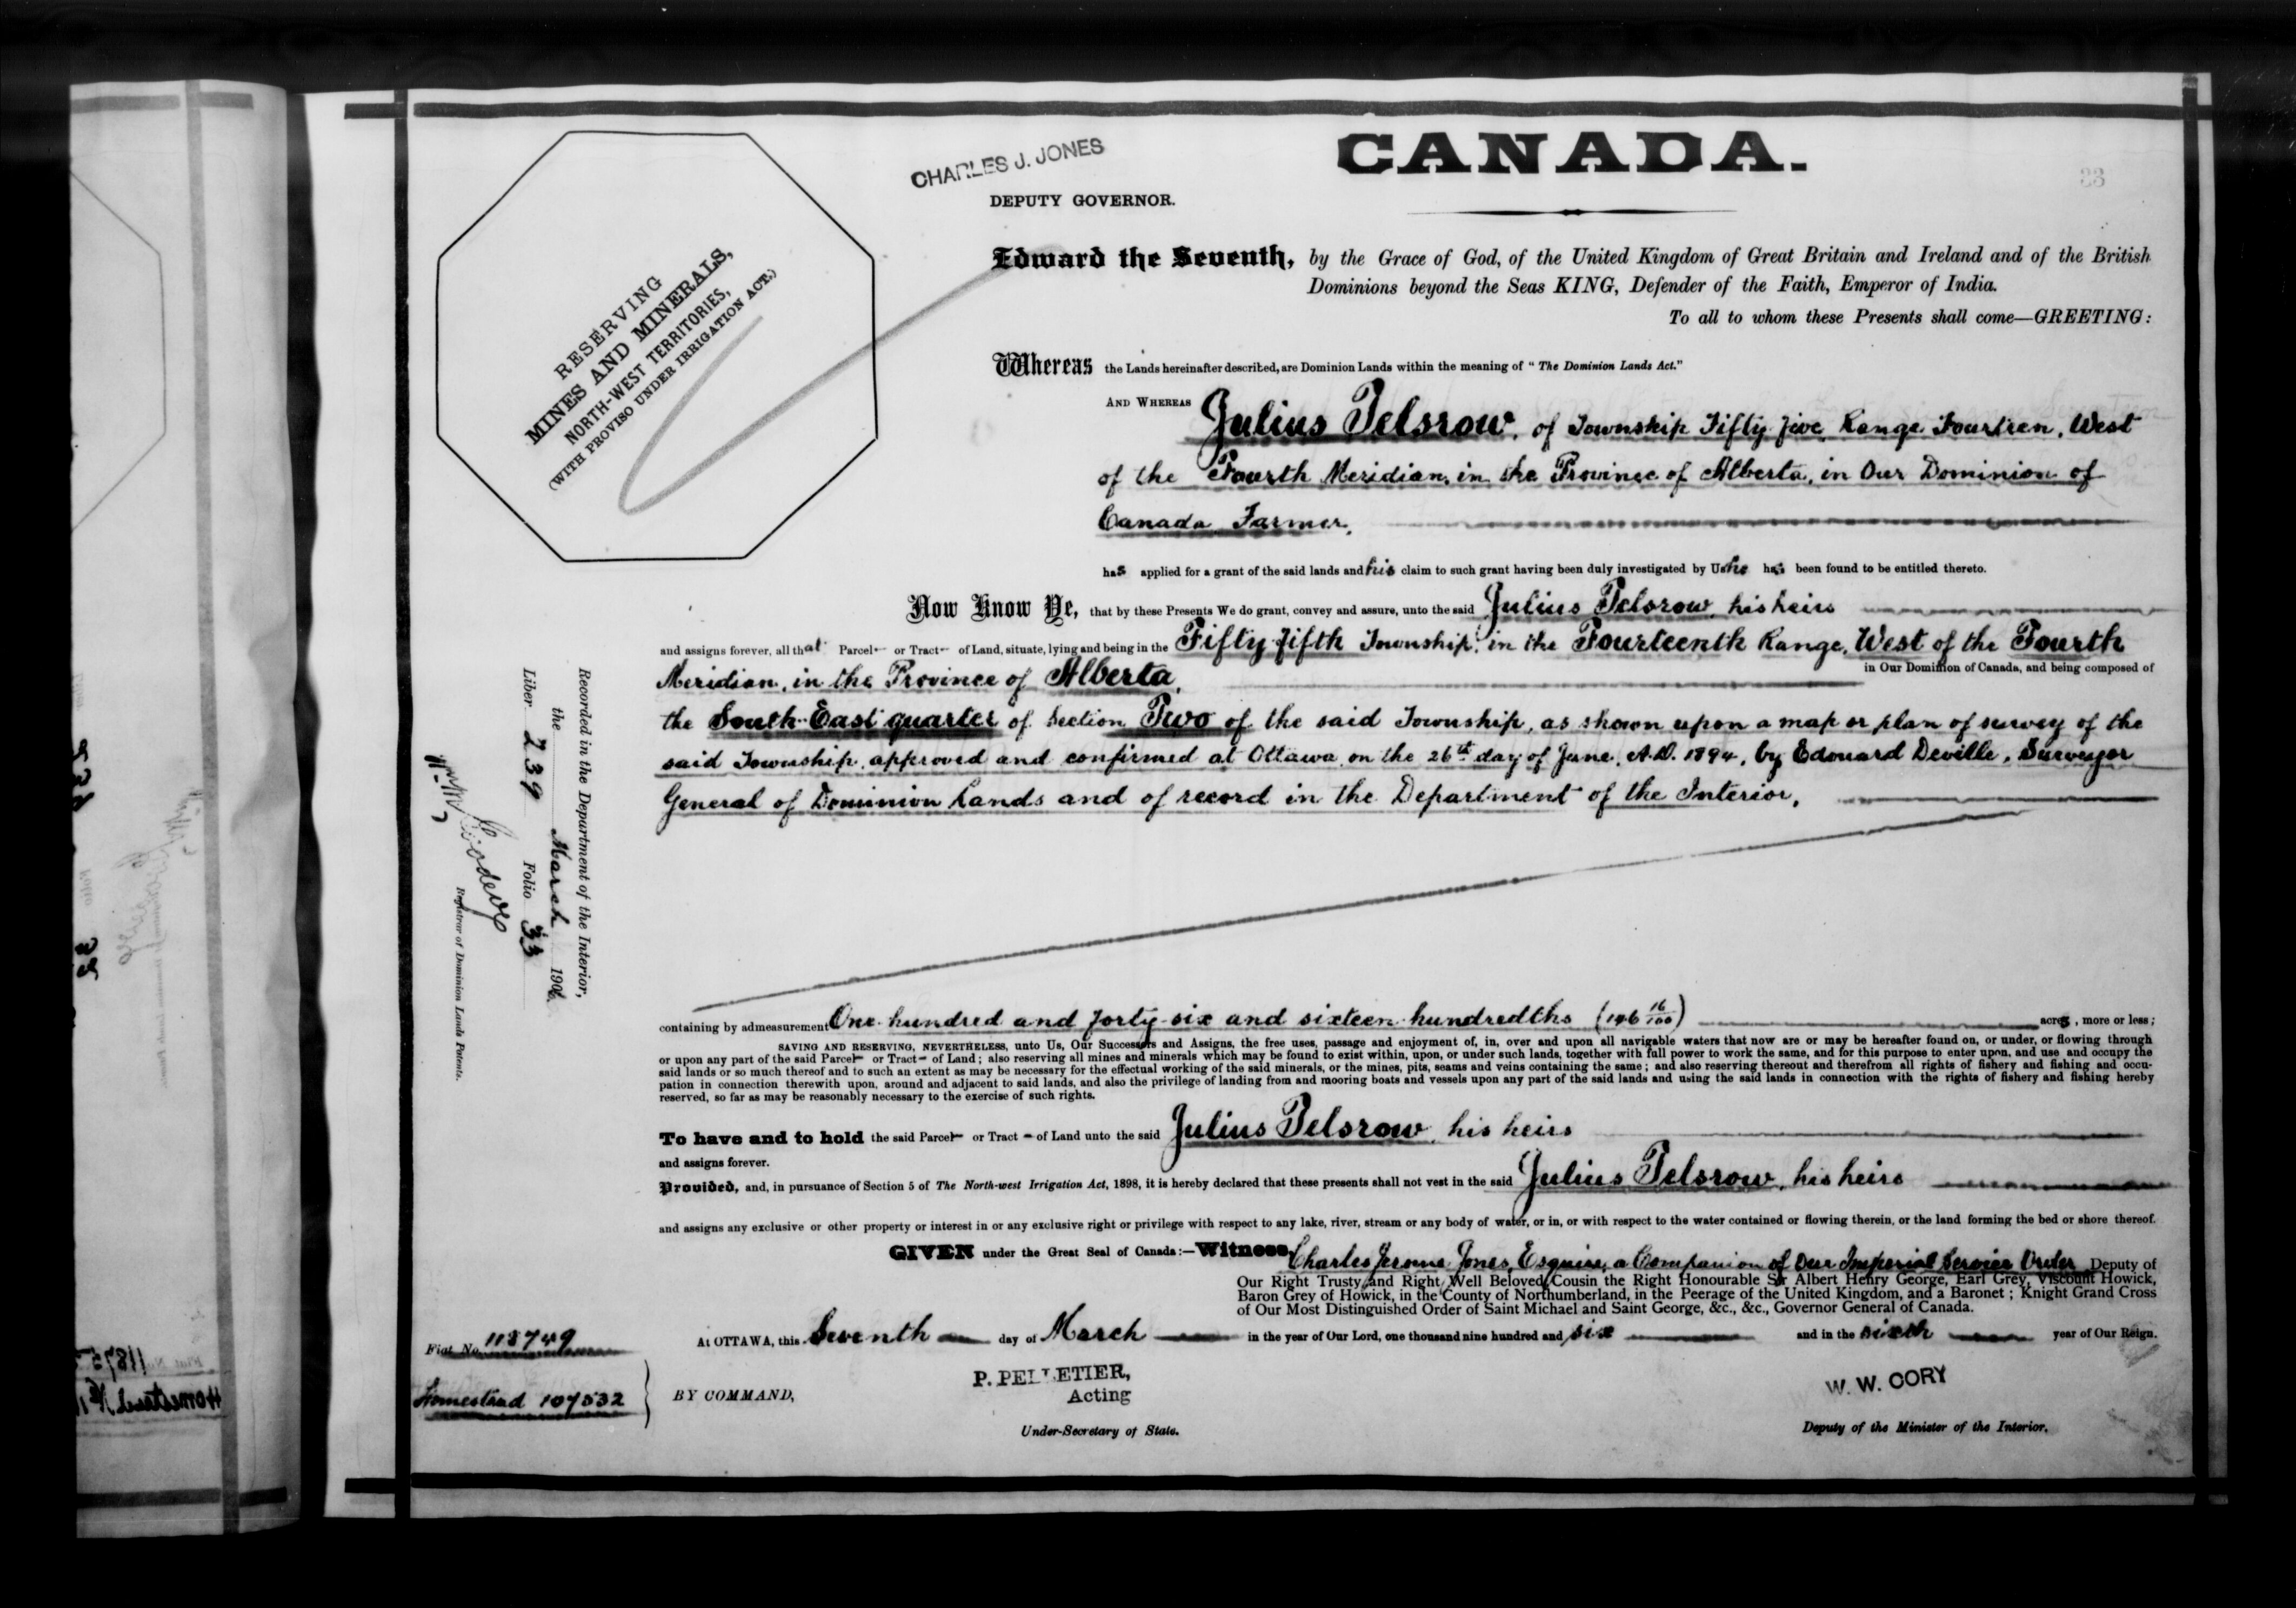 CANADA.
33
CHARLES J. JONES
DEPUTY GOVERNOR.
RESERVING
MINES AND MINERALS,
NORTH-WEST TERRITORIES,
(WITH PROVISO UNDER IRRIGATION ACT.)
Edward the Seventh, by the Grace of God, of the United Kingdom of Great Britain and Ireland and of the British
Dominions beyond the Seas KING, Defender of the Faith, Emperor of India.
To all to whom these Presents shall come—GREETING:
Whereas the Lands hereinafter described, are Dominion Lands within the meaning of "The Dominion Lands Act."
AND WHEREAS Julius Pelsrow, of Township Fifty five Range Fourteen, West
of the Fourth Meridian, in the Province of Alberta, in Our Dominion of
Canada Farmer,
has applied for a grant of the said lands and his claim to such grant having been duly investigated by Us he has been found to be entitled thereto.
Now Know Ye, that by these Presents We do grant, convey and assure, unto the said Julius Pelsrow, his heirs
and assigns forever, all that Parcel or Tract of Land, situate, lying and being in the Fifty fifth Township, in the Fourteenth Range, West of the Fourth
Meridian, in the Province of Alberta, in Our Dominion of Canada, and being composed of
the South East quarter of Section Two of the said Township, as shown upon a map or plan of survey of the
said Township, approved and confirmed at Ottawa, on the 26th day of June, A.D. 1894, by Edouard Deville, Surveyor
General of Dominion Lands and of record in the Department of the Interior,
Recorded in the Department of the Interior,
the March 1906
Liber 239 Folio 33
Registrar of Dominion Lands Patents.
containing by admeasurement One hundred and forty-six and sixteen hundredths (146 16/100) acres, more or less;
SAVING AND RESERVING, NEVERTHELESS, unto Us, Our Successors and Assigns, the free uses, passage and enjoyment of, in, over and upon all navigable waters that now are or may be hereafter found on, or under, or flowing through
or upon any part of the said Parcel or Tract of Land; also reserving all mines and minerals which may be found to exist within, upon, or under such lands, together with full power to work the same, and for this purpose to enter upon, and use and occupy the
said lands or so much thereof and to such an extent as may be necessary for the effectual working of the said minerals, or the mines, pits, seams and veins containing the same; and also reserving thereout and therefrom all rights of fishery and fishing and occu-
pation in connection therewith upon, around and adjacent to said lands, and also the privilege of landing from and mooring boats and vessels upon any part of the said lands and using the said lands in connection with the rights of fishery and fishing hereby
reserved, so far as may be reasonably necessary to the exercise of such rights.
To have and to hold the said Parcel or Tract of Land unto the said Julius Pelsrow, his heirs
and assigns forever.
Provided, and, in pursuance of Section 5 of The North-west Irrigation Act, 1898, it is hereby declared that these presents shall not vest in the said Julius Pelsrow, his heirs
and assigns any exclusive or other property or interest in or any exclusive right or privilege with respect to any lake, river, stream or any body of water, or in, or with respect to the water contained or flowing therein, or the land forming the bed or shore thereof.
GIVEN under the Great Seal of Canada:—Witness, Charles Jerome Jones, Esquire, a Companion of Our Imperial Service Order Deputy of
Our Right Trusty and Right Well Beloved Cousin the Right Honourable Sir Albert Henry George, Earl Grey, Viscount Howick,
Baron Grey of Howick, in the County of Northumberland, in the Peerage of the United Kingdom, and a Baronet; Knight Grand Cross
of Our Most Distinguished Order of Saint Michael and Saint George, &c., &c., Governor General of Canada.
At OTTAWA, this Seventh day of March in the year of Our Lord, one thousand nine hundred and six and in the sixth year of Our Reign.
Fiat No. 118749
Homestead 107532
BY COMMAND,
P. PELLETIER,
Acting
Under-Secretary of State.
W. W. CORY
Deputy of the Minister of the Interior.